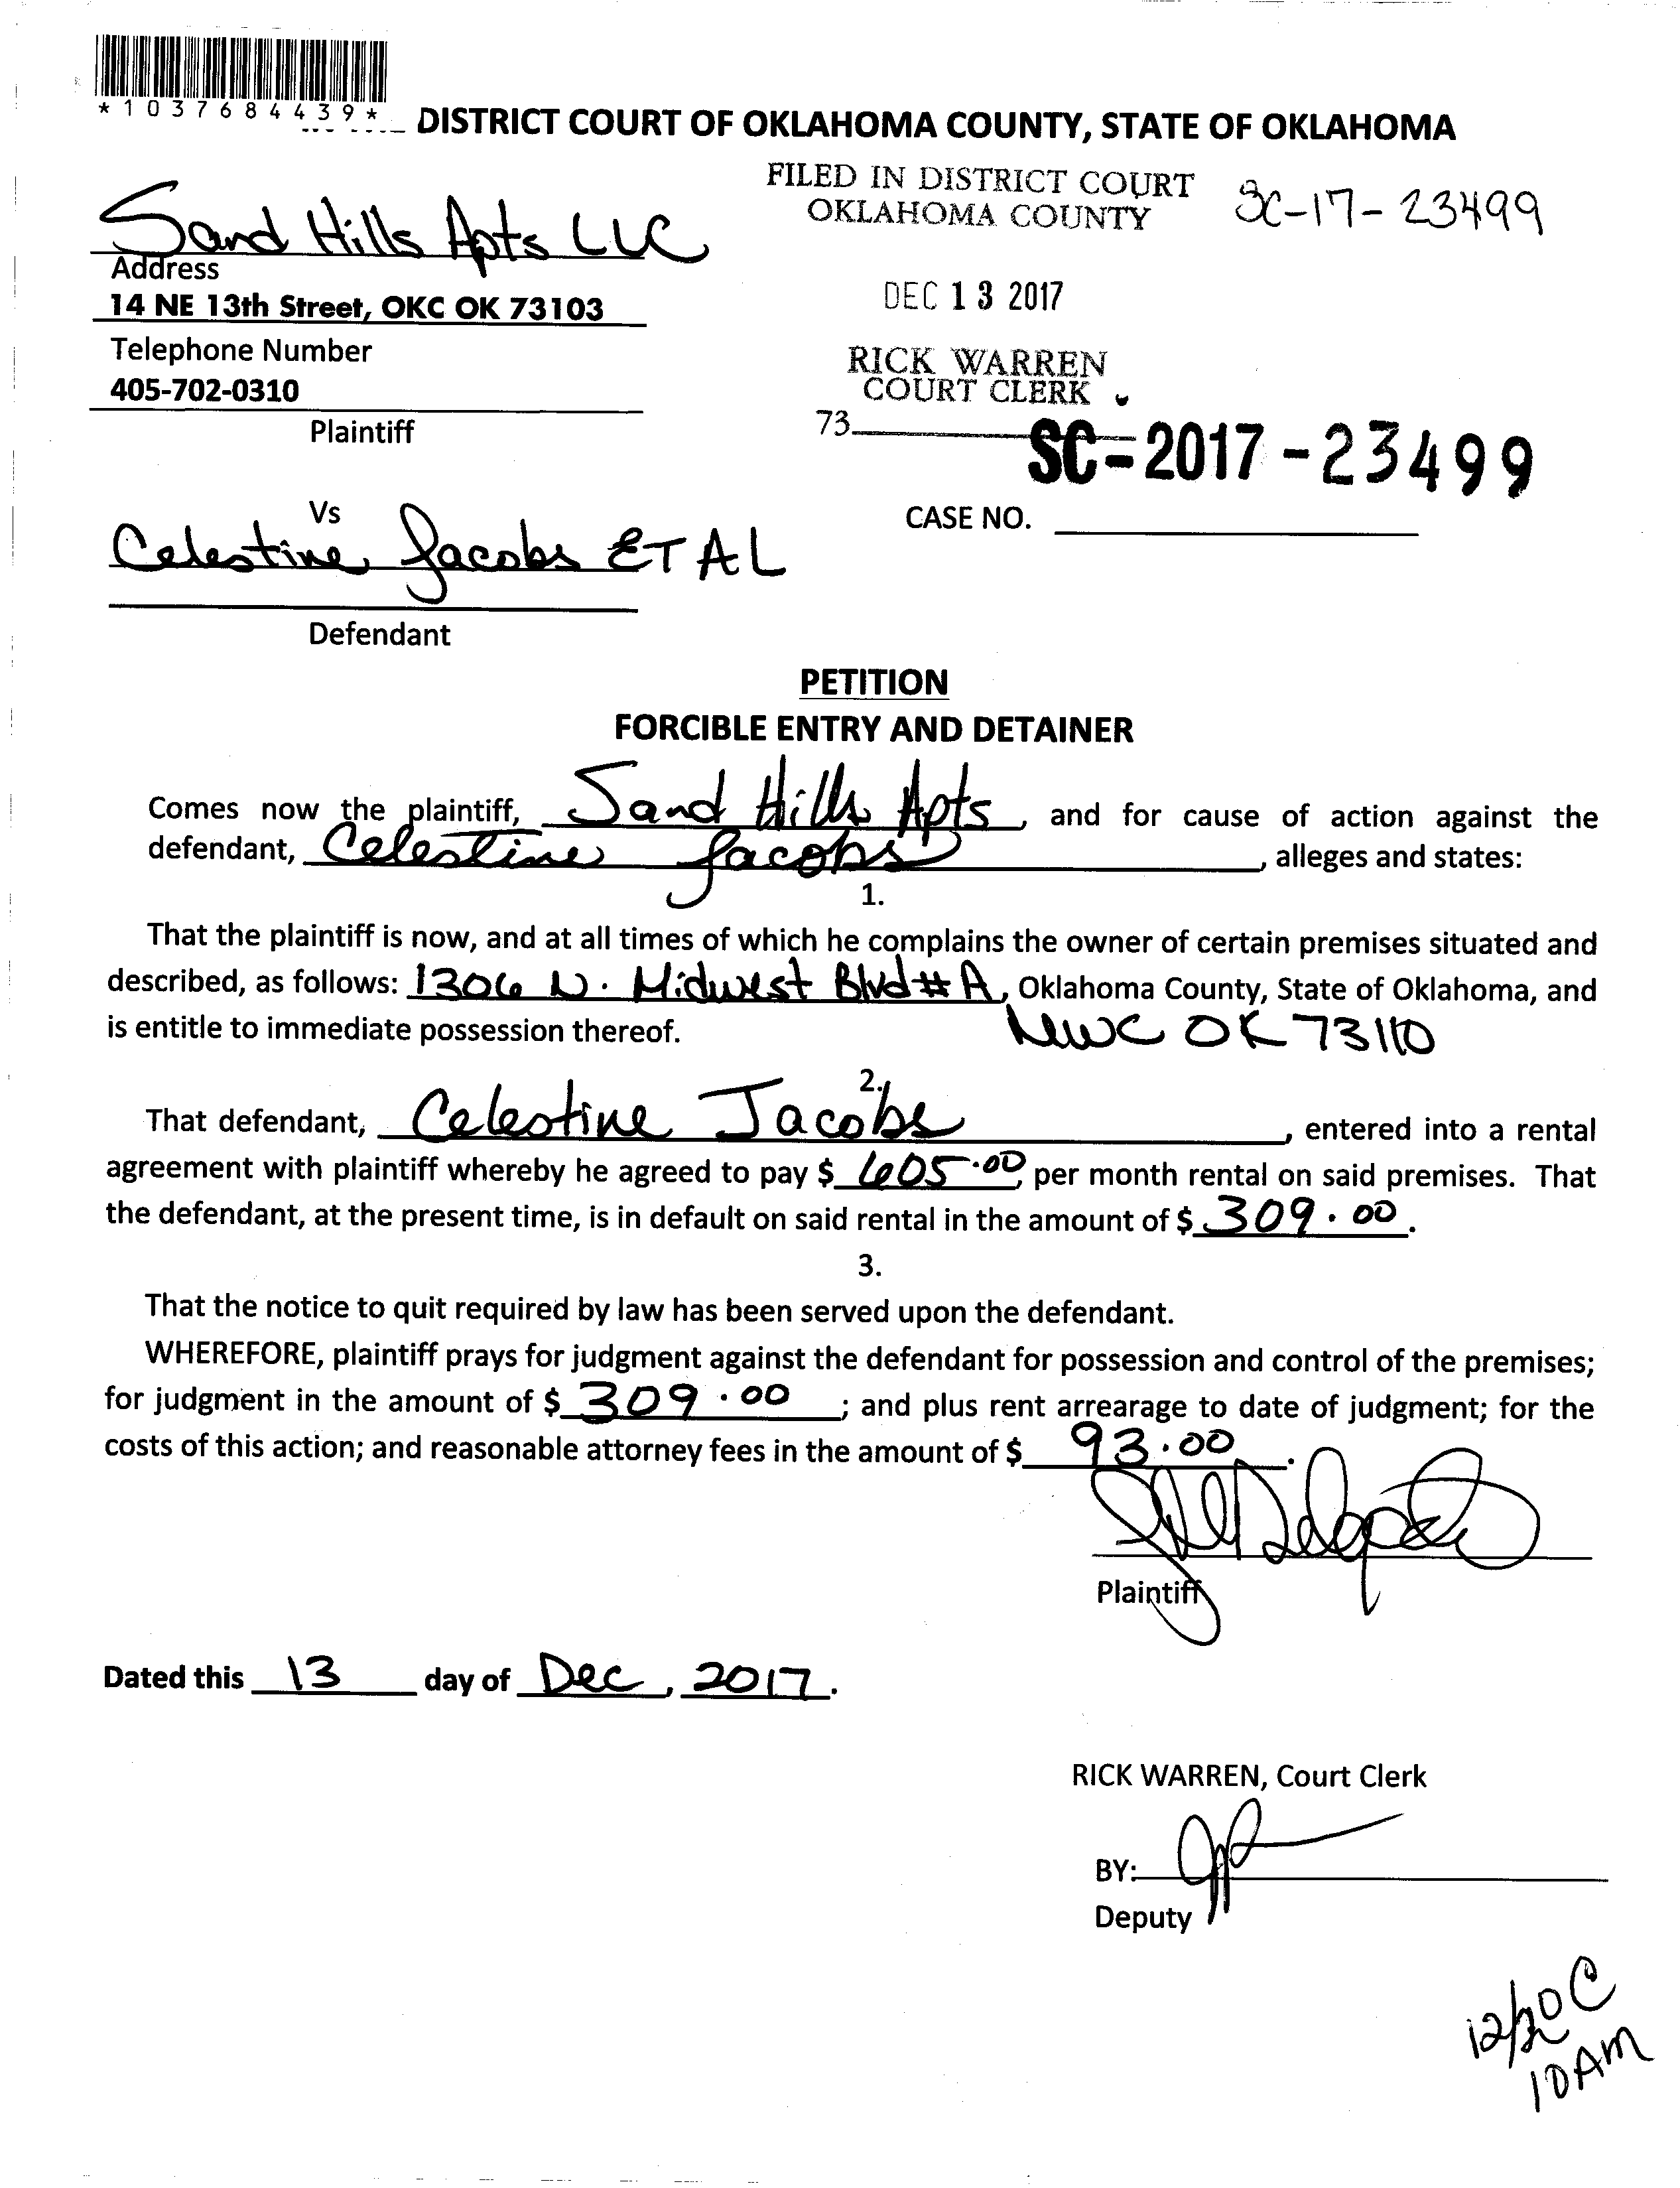 *1037684439*
DISTRICT COURT OF OKLAHOMA COUNTY, STATE OF OKLAHOMA
FILED IN DISTRICT COURT
OKLAHOMA COUNTY
SC-17-23499
Sand Hills Apts LLC
Address
14 NE 13th Street, OKC OK 73103
DEC 13 2017
Telephone Number
405-702-0310
RICK WARREN
COURT CLERK
Plaintiff
73
SC-2017-23499
Vs
CASE NO.
Celestine Jacobs ET AL
Defendant
PETITION
FORCIBLE ENTRY AND DETAINER
Comes now the plaintiff, Sand Hills Apts, and for cause of action against the
defendant, Celestine Jacobs, alleges and states:
1.
That the plaintiff is now, and at all times of which he complains the owner of certain premises situated and
described, as follows: 1306 N. Midwest Blvd # A, Oklahoma County, State of Oklahoma, and
is entitle to immediate possession thereof. MWC OK 73110
2.
That defendant, Celestine Jacobs, entered into a rental
agreement with plaintiff whereby he agreed to pay $ 605.00, per month rental on said premises. That
the defendant, at the present time, is in default on said rental in the amount of $ 309.00.
3.
That the notice to quit required by law has been served upon the defendant.
WHEREFORE, plaintiff prays for judgment against the defendant for possession and control of the premises;
for judgment in the amount of $ 309.00; and plus rent arrearage to date of judgment; for the
costs of this action; and reasonable attorney fees in the amount of $ 93.00.
Plaintiff
Dated this 13 day of Dec, 2017.
RICK WARREN, Court Clerk
BY:
Deputy
12/20 C
10AM